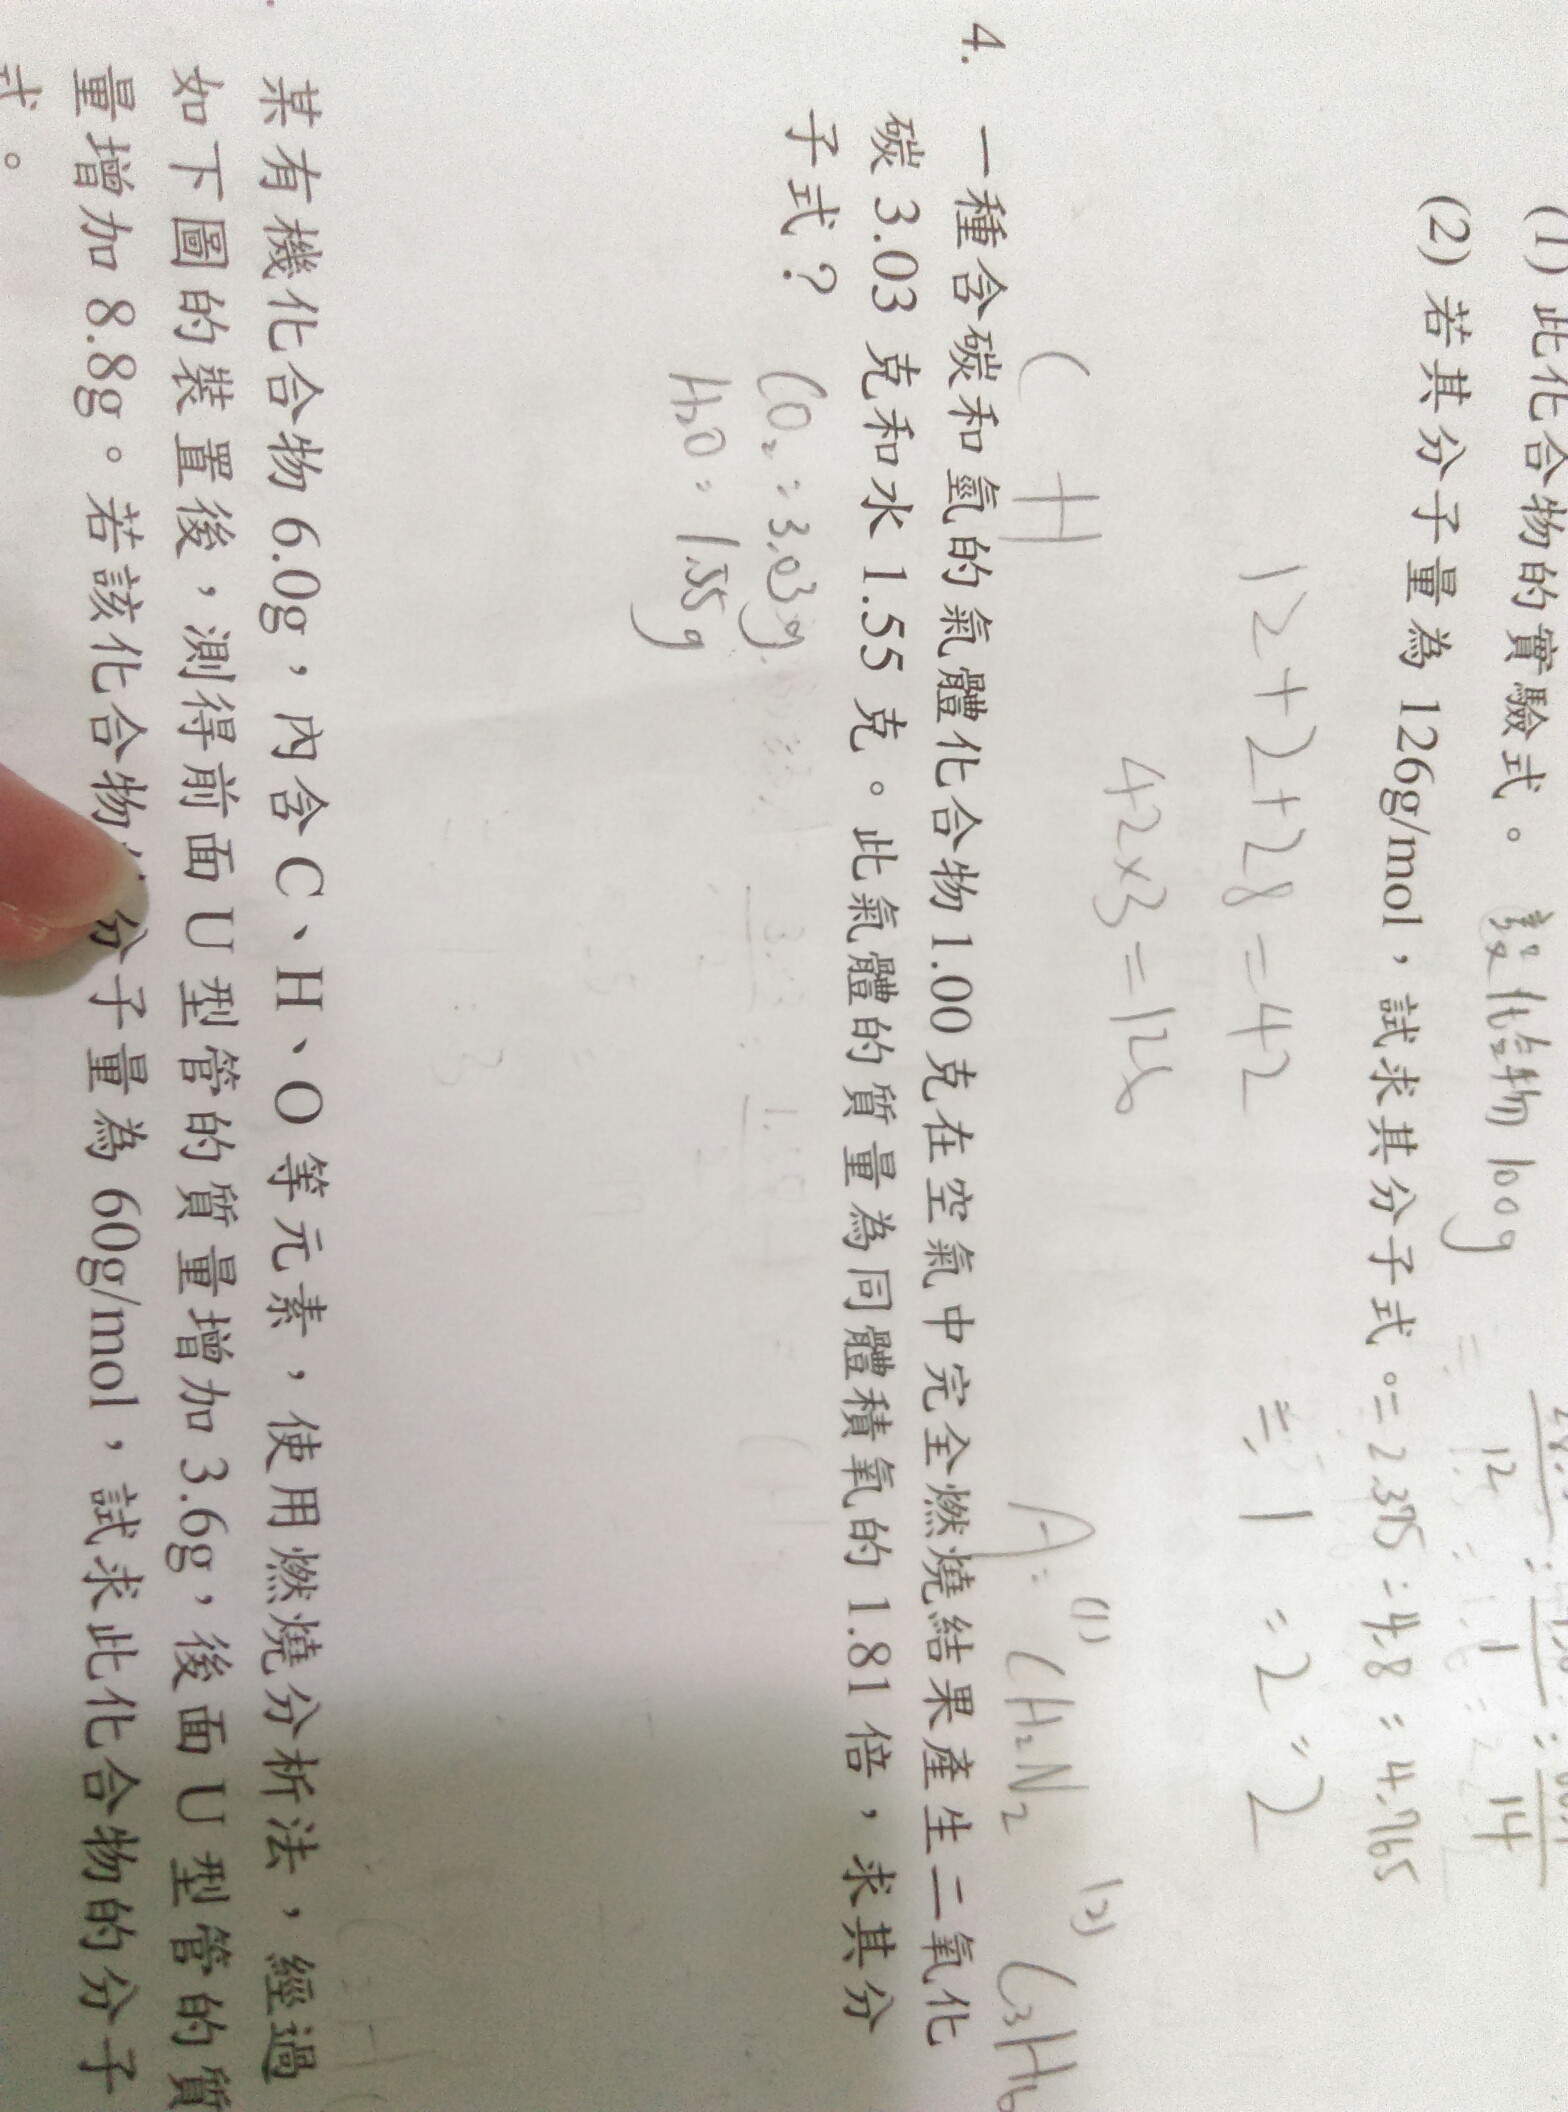 (1) 此化合物的實驗式。 設化合物 100g
12 14
(2) 若其分子量為 126g/mol，試求其分子式。= 2.375 : 4.8 : 4.765
12+2+28=42 = 1 : 2 : 2
42×3=126
A: (1) CH₂N₂ (2) C₃H₆
C H
4. 一種含碳和氫的氣體化合物 1.00 克在空氣中完全燃燒結果產生二氧化
碳 3.03 克和水 1.55 克。此氣體的質量為同體積氧的 1.81 倍，求其分
子式？
CO₂: 3.03g
H₂O: 1.55g
某有機化合物 6.0g，內含 C、H、O 等元素，使用燃燒分析法，經過
如下圖的裝置後，測得前面 U 型管的質量增加 3.6g，後面 U 型管的質
量增加 8.8g。若該化合物 分子量為 60g/mol，試求此化合物的分子
式。